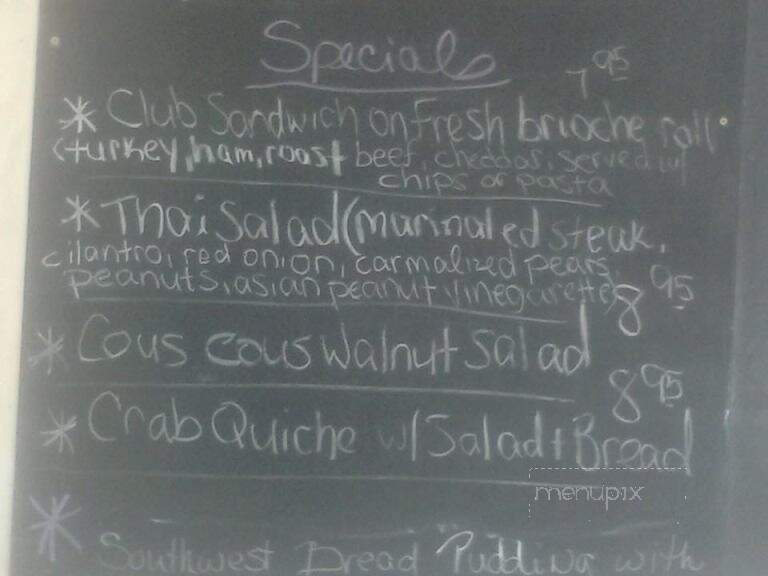 Specials
7 95
* Club Sandwich on Fresh brioche roll
(turkey, ham, roast beef, cheddar, served w/
chips or pasta
* Thai Salad (marinated steak,
cilantro, red onion, carmalized pears,
peanuts, asian peanut vinegarette) 8 95
* Cous cous walnut salad
8 95
* Crab Quiche w/ Salad + Bread
menupix
* Southwest Bread Pudding with